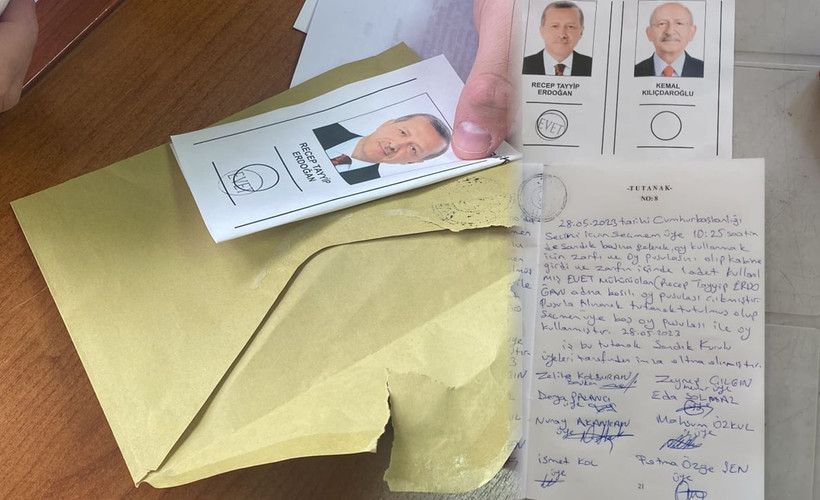 RECEP TAYYİP
ERDOĞAN
EVET
RECEP TAYYİP
ERDOĞAN
EVET
KEMAL
KILIÇDAROĞLU
-TUTANAK-
NO: 8
28.05.2023 tarihi Cumhurbaşkanlığı
Seçimi için Seçmen üye 10:25 saatin
de sandık başına gelerek, oy kullanmak
için zarfı ve oy pusulasını alıp kabine
girdi ve zarfın içinde 1 adet kullanıl
mış EVET mühürü olan (Recep Tayyip ERDO
ĞAN adına basılı oy pusulası çıkmıştır.
tutanak tutulmuş olup
Seçmen üye boş oy pusulası ile oy
kullanmıştır. 28.05.2023
iş bu tutanak Sandık Kurulu
üyeleri tarafından imza altına alınmıştır.
Zeliha KOLBURAN Zeynep ÇILGIN
üye
Derya PALANCI Eda SOLMAZ
üye üye
Nuray AKARKAN Mahsum ÖZKUL
üye üye
ismet KOL Fatma Özge ŞEN
üye üye
21